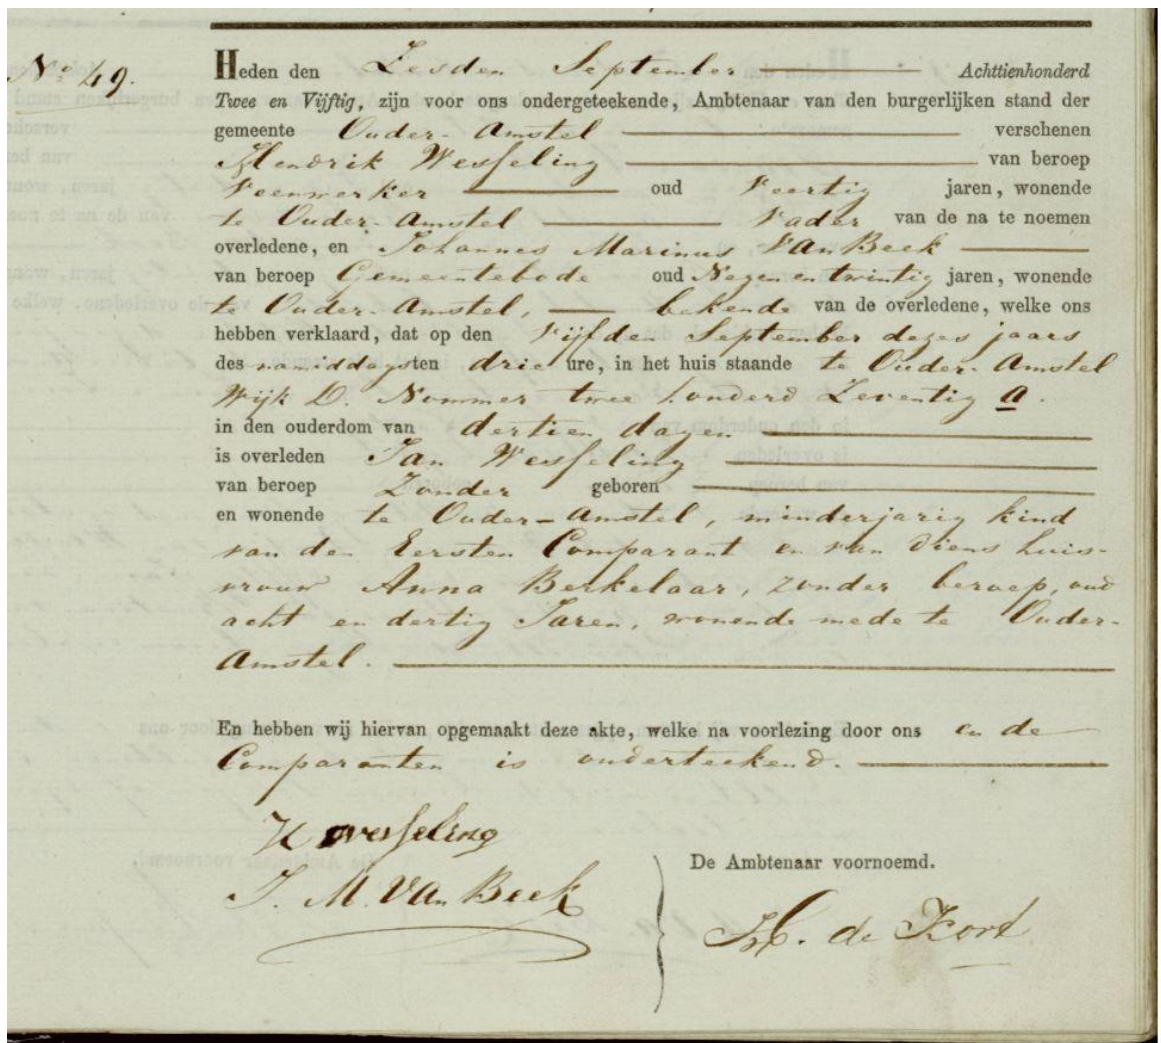 No 49.
Heden den Zesden September Achttienhonderd
Twee en Vijftig, zijn voor ons ondergeteekende, Ambtenaar van den burgerlijken stand der
gemeente Ouder-Amstel verschenen
Hendrik Wesseling van beroep
Veenwerker oud Veertig jaren, wonende
te Ouder-Amstel Vader van de na te noemen
overledene, en Johannes Marinus Van Beek
van beroep Gemeentebode oud Negen en twintig jaren, wonende
te Ouder-Amstel, bekende van de overledene, welke ons
hebben verklaard, dat op den Vijfden September dezes jaars
des namiddags ten drie ure, in het huis staande te Ouder-Amstel
Wijk D. Nommer twee honderd Zeventig a.
in den ouderdom van dertien dagen
is overleden Jan Wesseling
van beroep Zonder geboren
en wonende te Ouder-Amstel, minderjarig kind
van den Eersten Comparant en van diens huis-
vrouw Anna Berkelaar, zonder beroep, oud
acht en dertig Jaren, wonende mede te Ouder-
Amstel.
En hebben wij hiervan opgemaakt deze akte, welke na voorlezing door ons en de
Comparanten is onderteekend.
H Wesseling
J. M. Van Beek
De Ambtenaar voornoemd.
de Kort